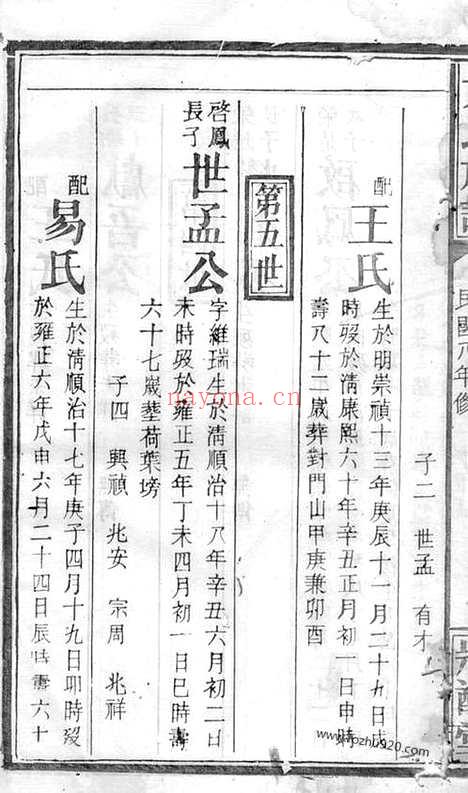 民國八年修
子二 世孟 有才
配王氏
生於明崇禎十三年庚辰十一月二十九日戌
時殁於清康熙六十年辛丑正月初一日申時
壽八十二歲葬對門山甲庚兼卯酉
第五世
啓鳳長子世孟公
字維瑞生於清順治十八年辛丑六月初二日
未時殁於雍正五年丁未四月初一日巳時壽
六十七歲塟荷葉塝
子四 興禎 兆安 宗周 兆祥
配易氏
生於清順治十七年庚子四月十九日卯時殁
於雍正六年戊申六月二十四日辰時壽六十
nayona.cn
www.mpzhu920.com